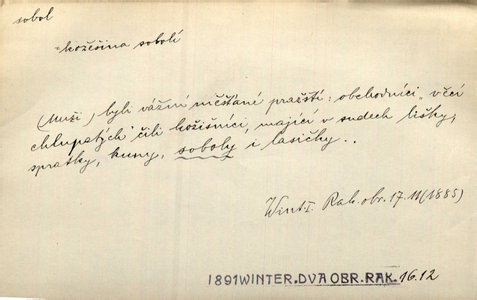 sobol
= kožešina sobolí
(Muži) byli vážní měšťané pražští: obchodníci „věcí
chlupatých“ čili kožišníci, mající v sudech lišky,
spratky, kuny, soboly i lasičky..
Wint. Rak. obr. 17. II (1885)
1891WINTER.DVA OBR.RAK. 16.12